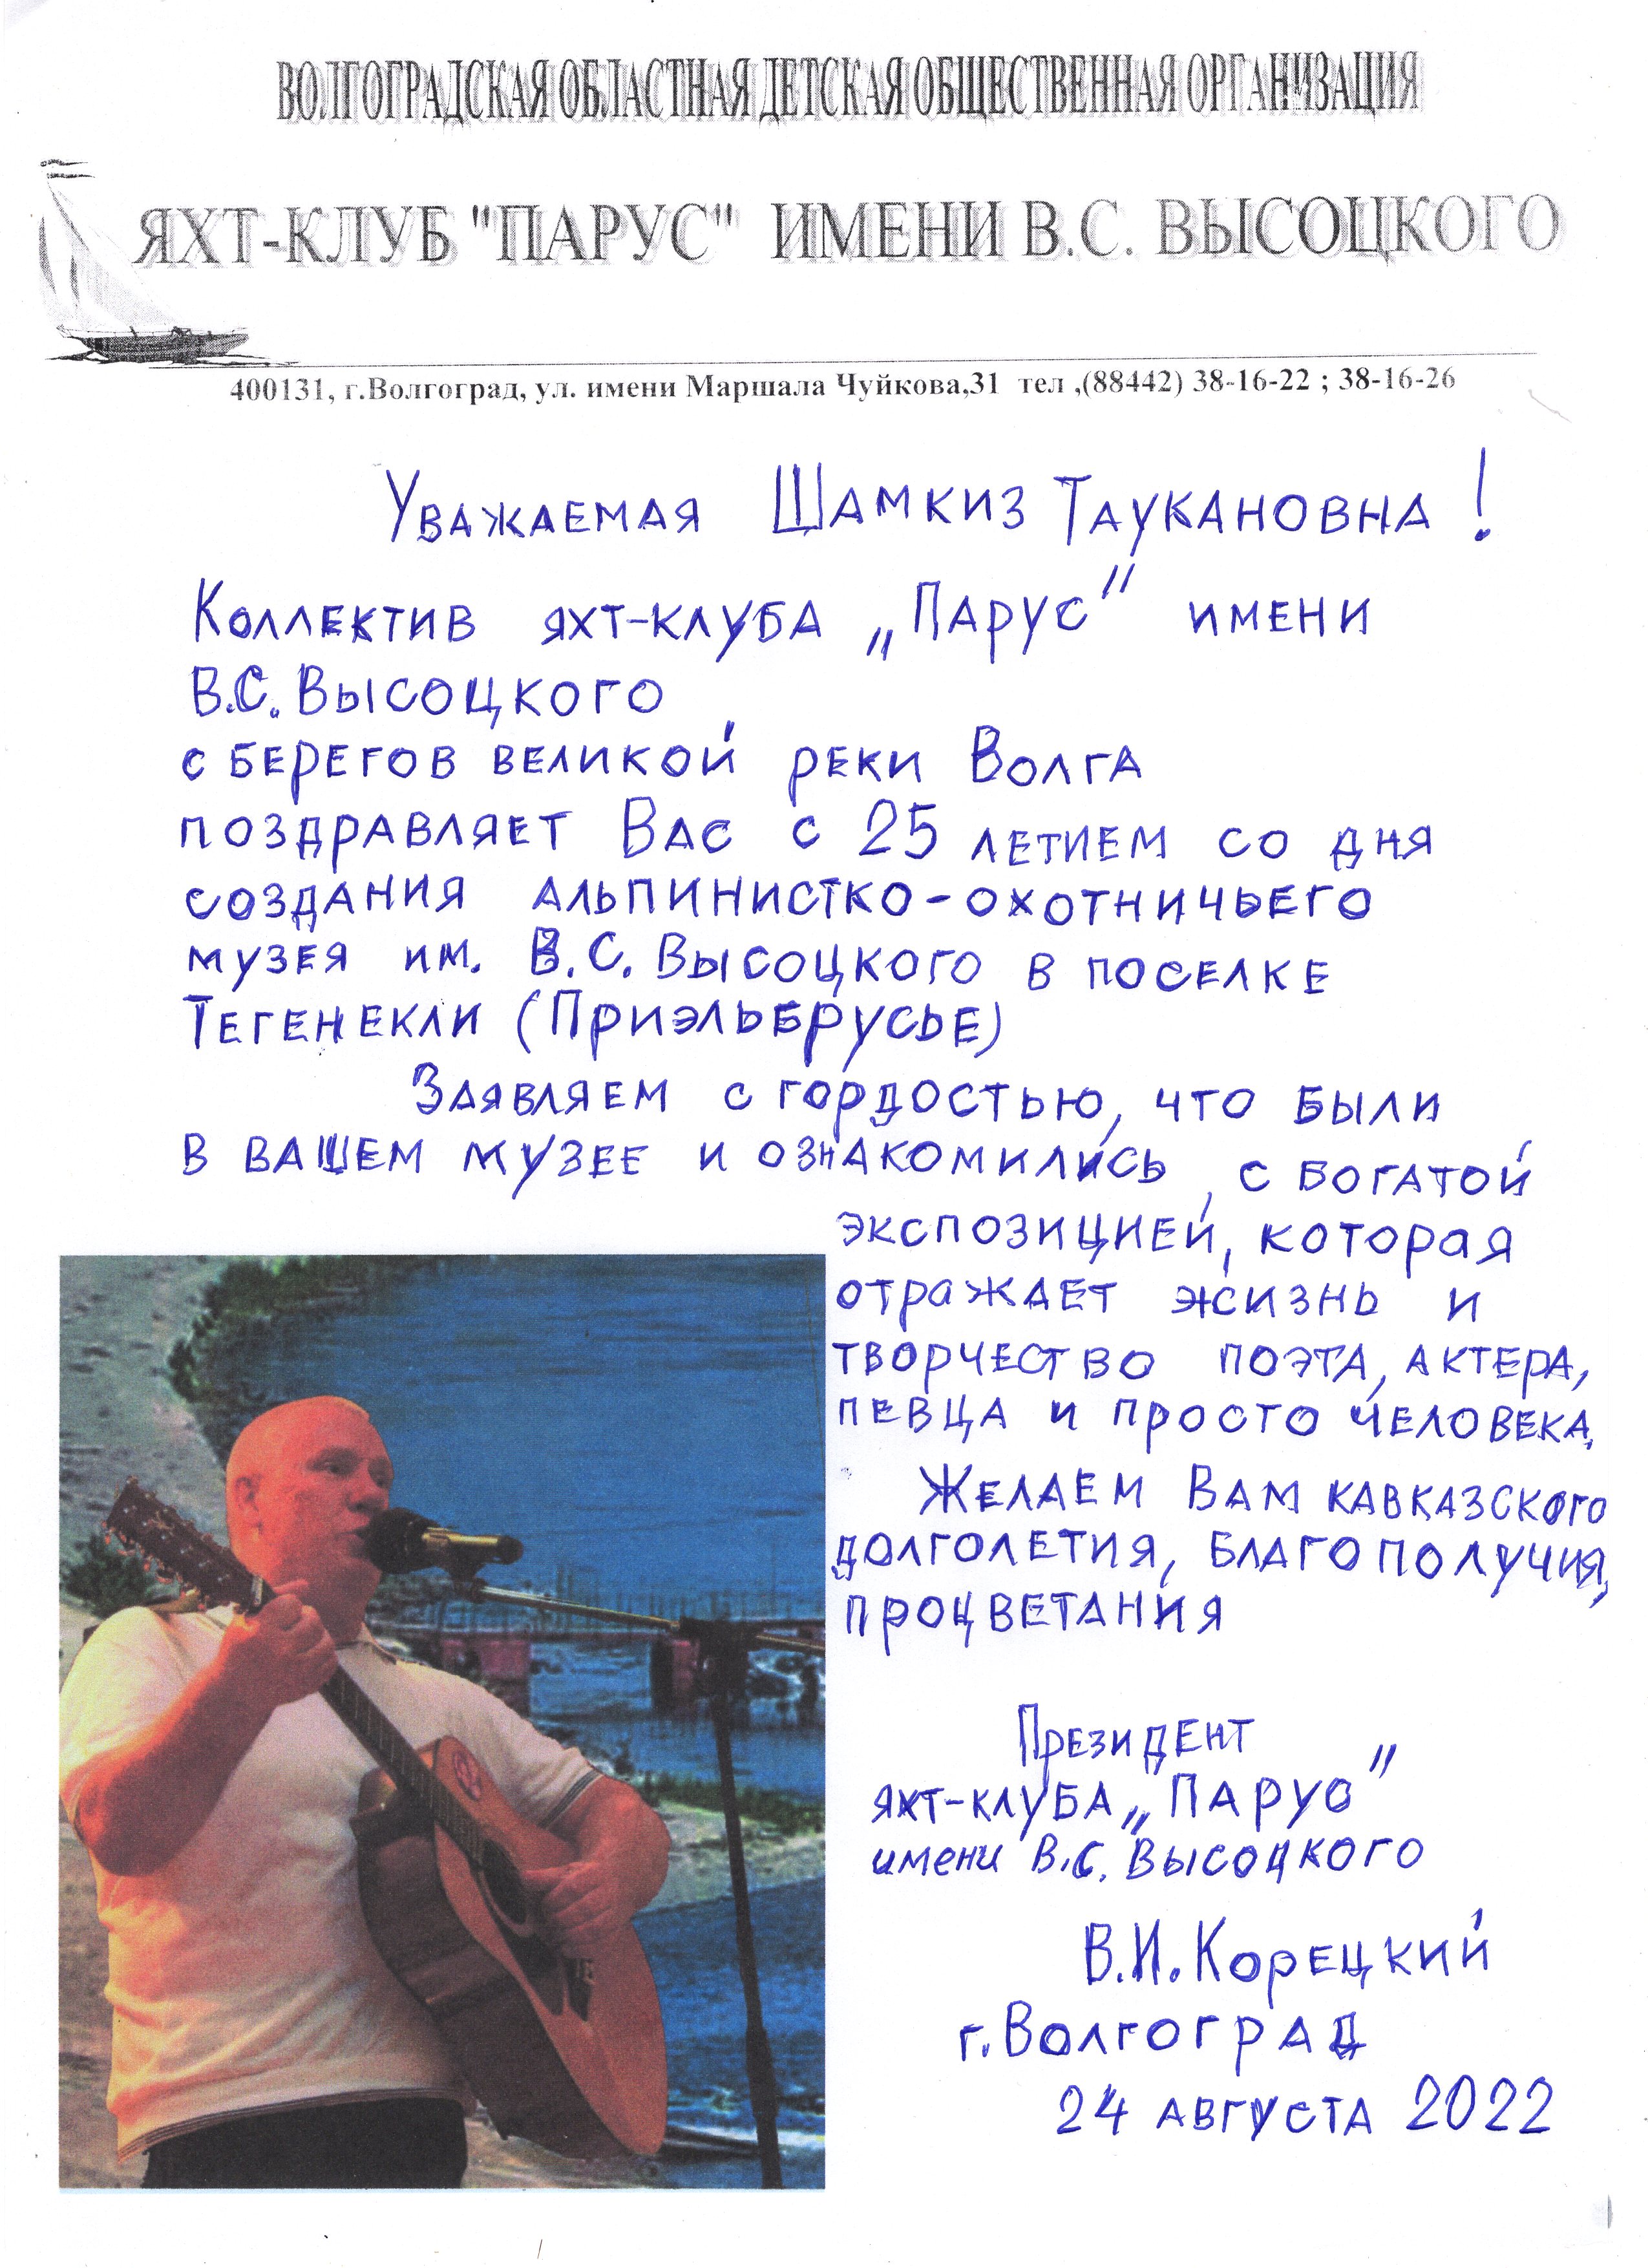 ВОЛГОГРАДСКАЯ ОБЛАСТНАЯ ДЕТСКАЯ ОБЩЕСТВЕННАЯ ОРГАНИЗАЦИЯ
ЯХТ-КЛУБ "ПАРУС" ИМЕНИ В.С. ВЫСОЦКОГО
400131, г.Волгоград, ул. имени Маршала Чуйкова,31 тел ,(88442) 38-16-22 ; 38-16-26
Уважаемая Шамкиз Таукановна!
Коллектив яхт-клуба „Парус" имени
В.С. Высоцкого
с берегов великой реки Волга
поздравляет Вас с 25 летием со дня
создания альпинистко-охотничьего
музея им. В.С. Высоцкого в поселке
Тегенекли (Приэльбрусье)
Заявляем с гордостью, что были
в вашем музее и ознакомились с богатой
экспозицией, которая
отражает жизнь и
творчество поэта, актера,
певца и просто человека.
Желаем Вам кавказского
долголетия, благополучия,
процветания
Президент
яхт-клуба „Парус"
имени В.С. Высоцкого
В.И. Корецкий
г. Волгоград
24 августа 2022